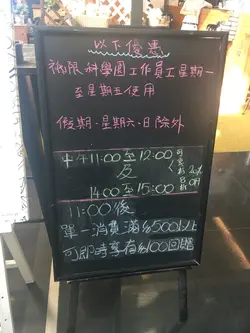 以下優惠
祗限科學園工作員工星期一
至星期五使用
假期,星期六、日除外
中午11:00至12:00
及
14:00至15:00
11:00後
單一消費滿$500以上
可即時享有$100回贈